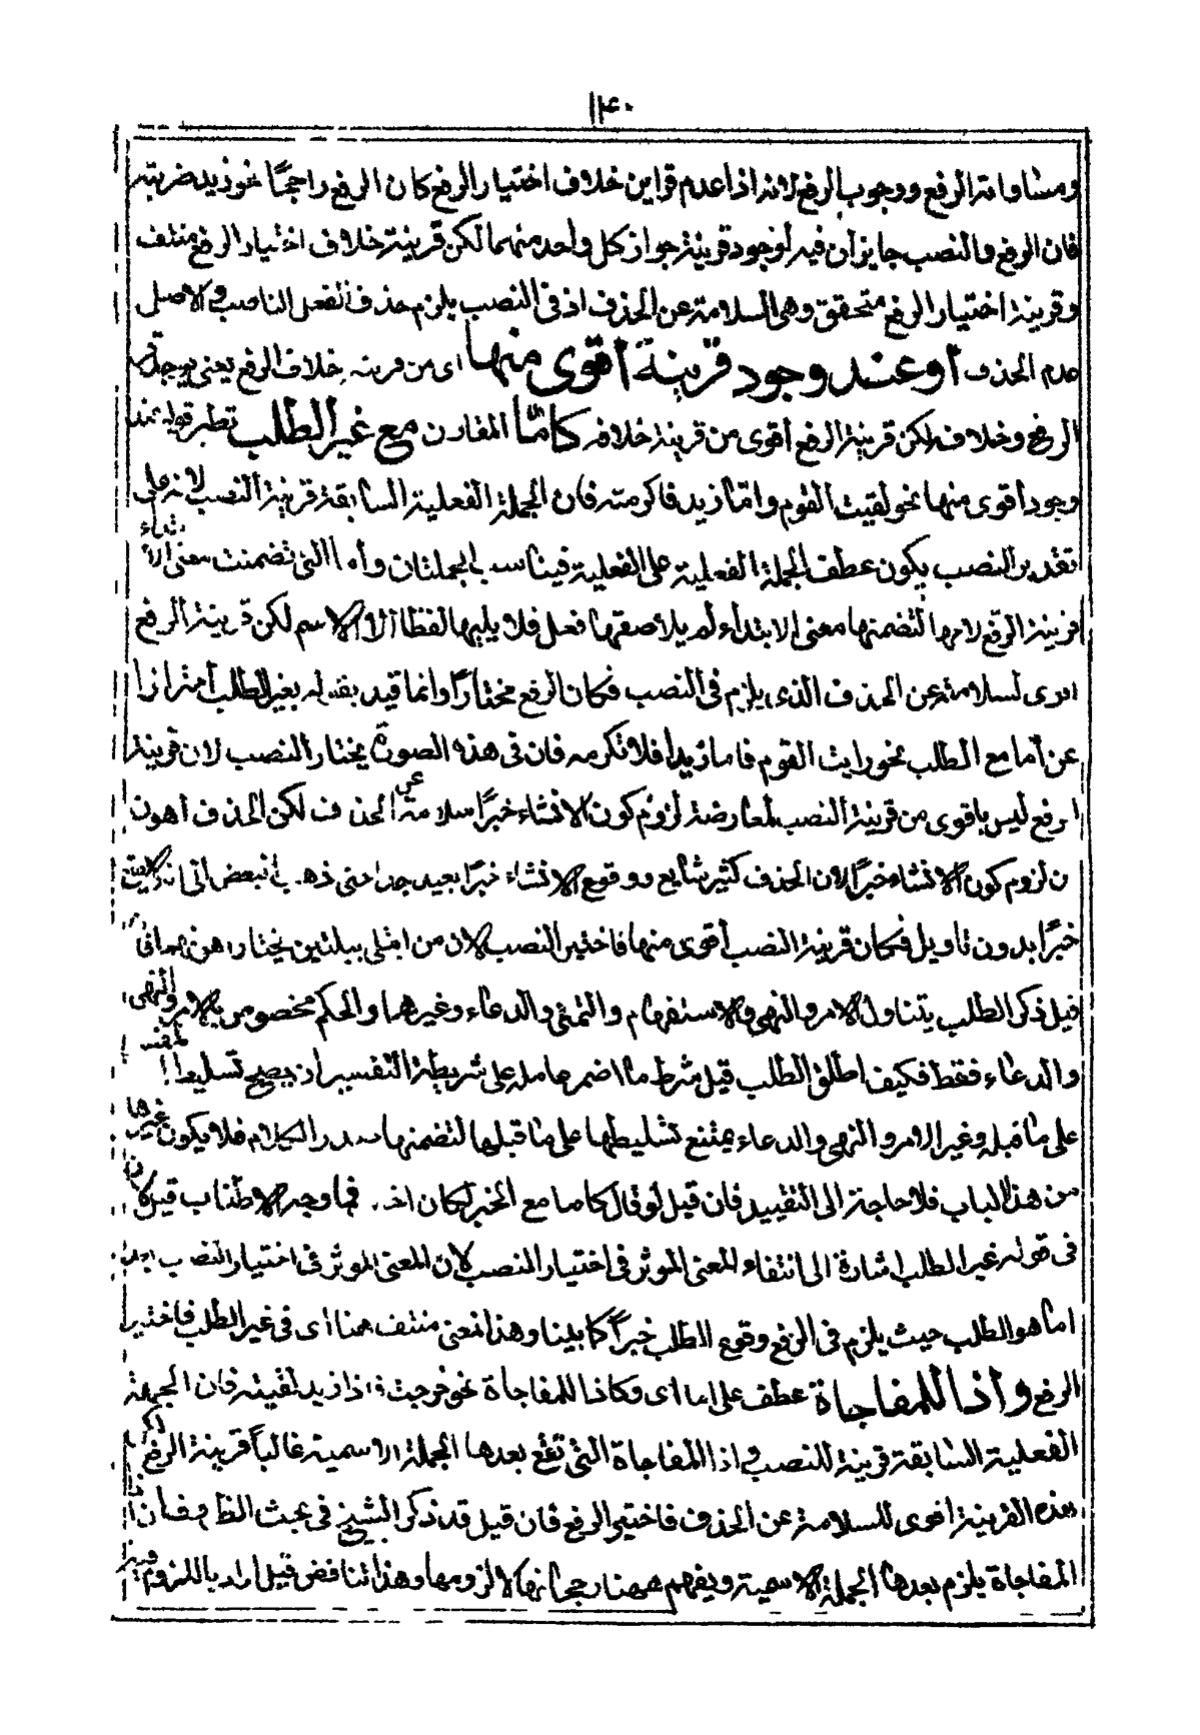 ١١٤٠
ومساواته الرفع ووجوب الرفع لانه اذا عدم قراين خلاف اختيار الرفع كان الرفع راجحًا نحو زيد ضربته
فان الرفع والنصب جايزان فيه لوجود قرينة جواز كل واحد منهما لكن قرينة خلاف اختيار الرفع منتف
وقرينة اختيار الرفع متحقق وهى السلامة عن الحذف اذ فى النصب يلزم حذف الفعل الناصب والاصل
عدم الحذف أو عند وجود قرينة أقوى منها اى من قرينة خلاف الرفع يعنى يوجد قرينة
الرفع وخلافه لكن قرينة الرفع أقوى من قرينة خلافه كامّا المقارن مع غير الطلب نظير قوله عند
وجود أقوى منها نحو لقيت القوم وامّا زيد فاكرمته فان الجملة الفعلية السابقة قرينة النصب لانه على
تقدير النصب يكون عطف الجملة الفعلية على الفعلية فيناسب الجملتان وأما التى تضمنت معنى الابتداء
قرينة الرفع لانها لتضمنها معنى الابتداء لم يلاصقها فعل فلا يليها لفظا الا الاسم لكن قرينة الرفع
اقوى لسلامته عن الحذف الذى يلزم فى النصب فكان الرفع مختارًا وانما قيد بقوله بغير الطلب احترازا
عن أما مع الطلب نحو رايت القوم فاما زيدا فلا تكرمه فان فى هذه الصورة يختار النصب لان قرينة
الرفع ليس باقوى من قرينة النصب لمعارضة لزوم كون الانشاء خبرًا سلامة عن الحذف لكن الحذف أهون
من لزوم كون الانشاء خبرًا لان الحذف كثير شايع ووقوع الانشاء خبرًا بعيد جدا حتى ذهب البعض الى انه لا يقع
خبرًا بدون تاويل فكان قرينة النصب أقوى منها فاختير النصب لان من ابتلى ببلتين يختار اهونهما فان
قيل ذكر الطلب يتناول الامر والنهى والاستفهام والتمنى والدعاء وغيرهما والحكم مخصوص بالامر والنهى
والدعاء فقط فكيف اطلق الطلب قيل شرط ما اضمر عامله على شريطة التفسير ان يصح تسليط المفسر
على ما قبله وغير الامر والنهى والدعاء يمتنع تسليطها على ما قبلها لتضمنها صدر الكلام فلا يكون غيرها
من هذا الباب فلا حاجة الى التقييد فان قيل لو قال كاما مع الخبر لكان اخصر فما وجه الاطناب قيل كان
فى قوله غير الطلب اشارة الى انتفاء المعنى الموثر فى اختيار النصب لان المعنى الموثر فى اختيار النصب بعد
اما هو الطلب حيث يلزم فى الرفع وقوع الطلب خبرًا كما بينا وهذا معنى منتف هنا اى فى غير الطلب فاختير
الرفع واذا للمفاجاة عطف على اما اى وكاذا للمفاجاة نحو خرجت فاذا زيد لقيته فان الجملة
الفعلية السابقة قرينة للنصب واذا المفاجاة التى تقع بعدها الجملة الاسمية غالبًا قرينة الرفع لكن
هذه القرينة اقوى للسلامة عن الحذف فاختير الرفع فان قيل قد ذكر الشيخ فى بحث الظروف ان اذا
المفاجاة يلزم بعدها الجملة الاسمية ويفهم ههنا رجحانها لا لزومها وهذا تناقض قيل اراد باللزوم